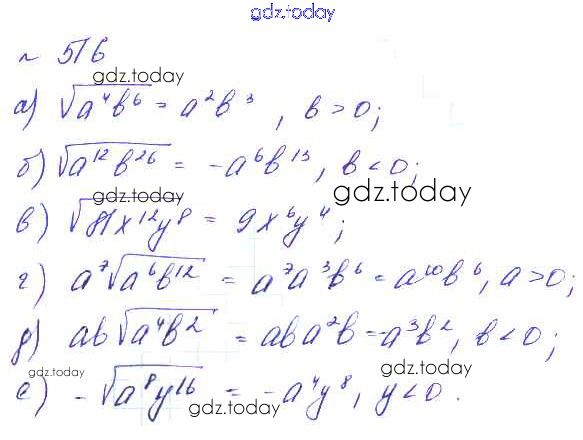 gdz.today
№ 516
gdz.today
а) √a⁴b⁶ = a²b³, b > 0;
б) √a¹²b²⁶ = -a⁶b¹³, b < 0;
gdz.today
gdz.today
в) √81x¹²y⁸ = 9x⁶y⁴;
г) a⁷√a⁶b¹² = a⁷a³b⁶ = a¹⁰b⁶, a > 0;
gdz.today
д) ab√a⁴b² = aba²b = -a³b², b < 0;
gdz.today
gdz.today
е) -√a⁸y¹⁶ = -a⁴y⁸, y < 0.
gdz.today